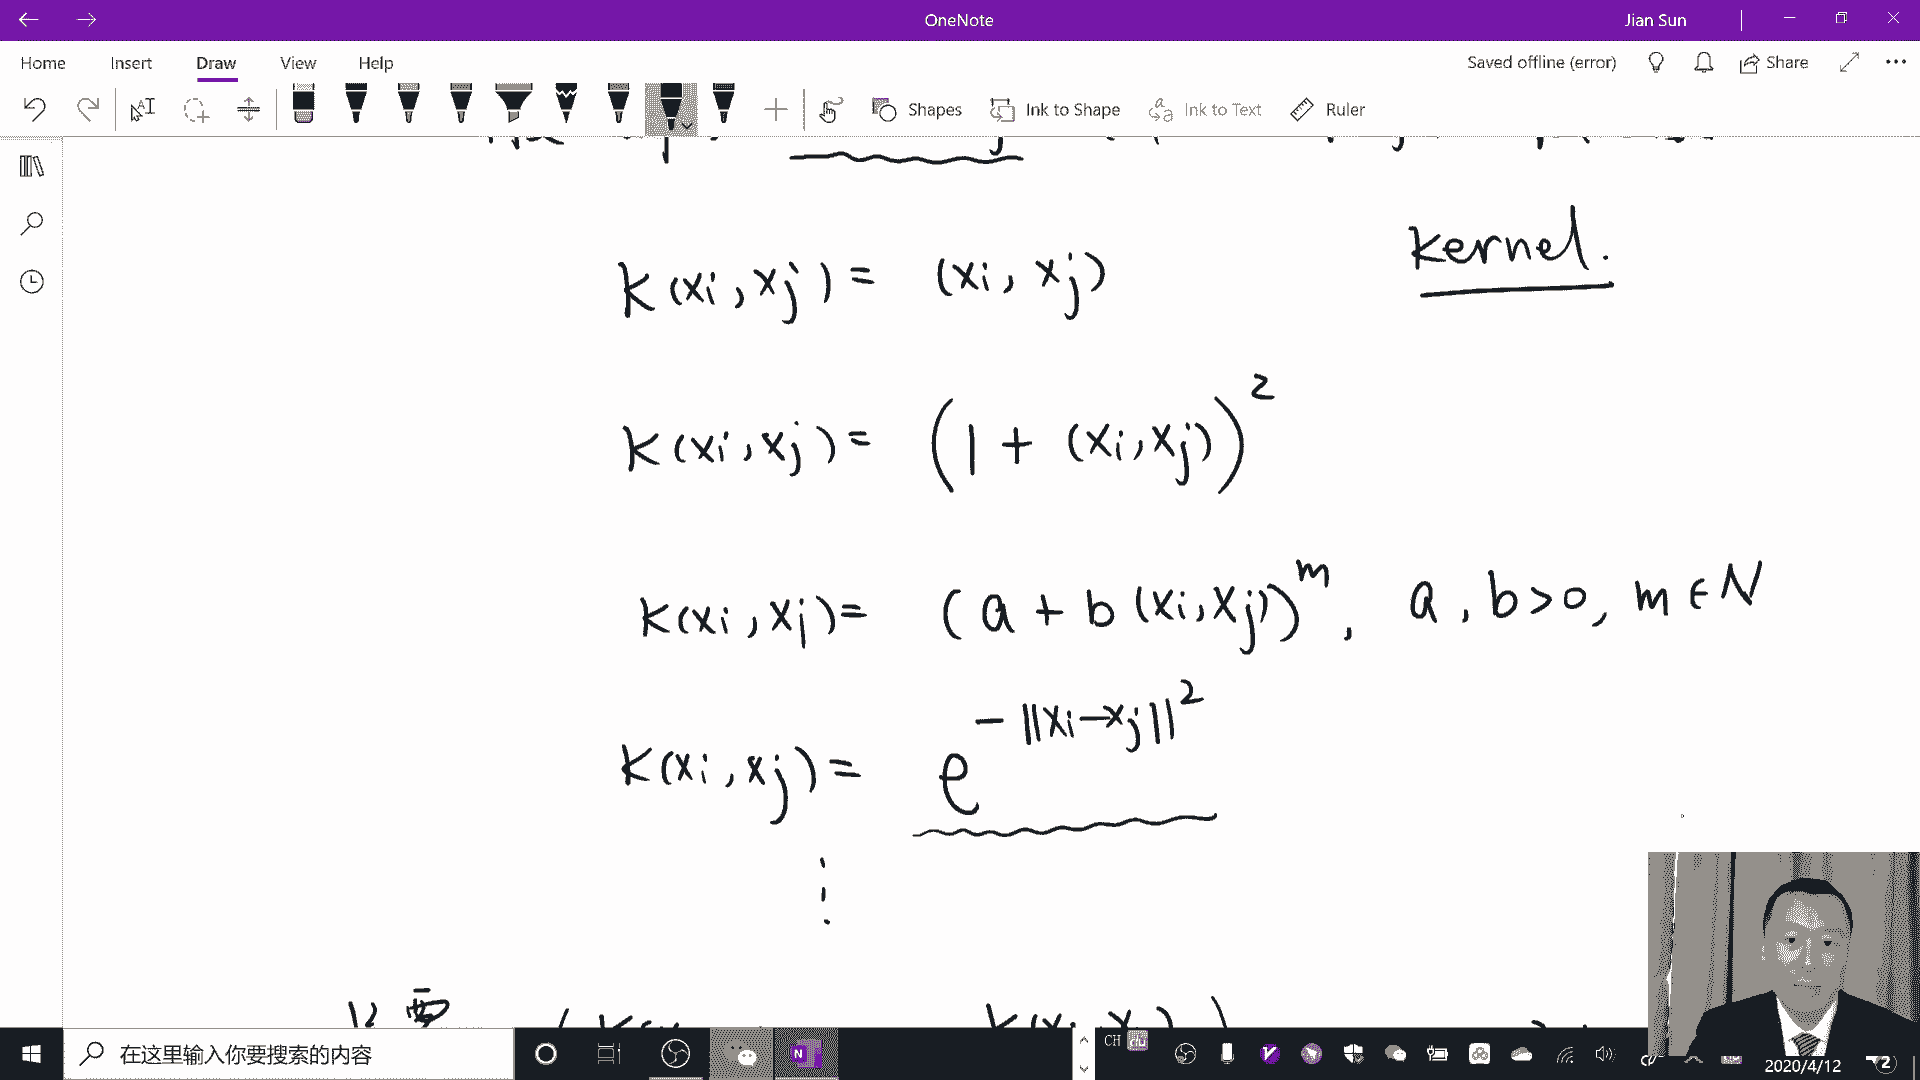 OneNote
Jian Sun
Home Insert Draw View Help
Saved offline (error) Share
Shapes Ink to Shape Ink to Text Ruler
kernel.
K(xi, xj) = (xi, xj)
K(xi, xj) = (1 + (xi, xj))²
K(xi, xj) = (a + b(xi, xj))ᵐ, a, b > 0, m ∈ N
K(xi, xj) = e^{-||xi - xj||²}
⋮
在这里输入你要搜索的内容
CH
2020/4/12
2